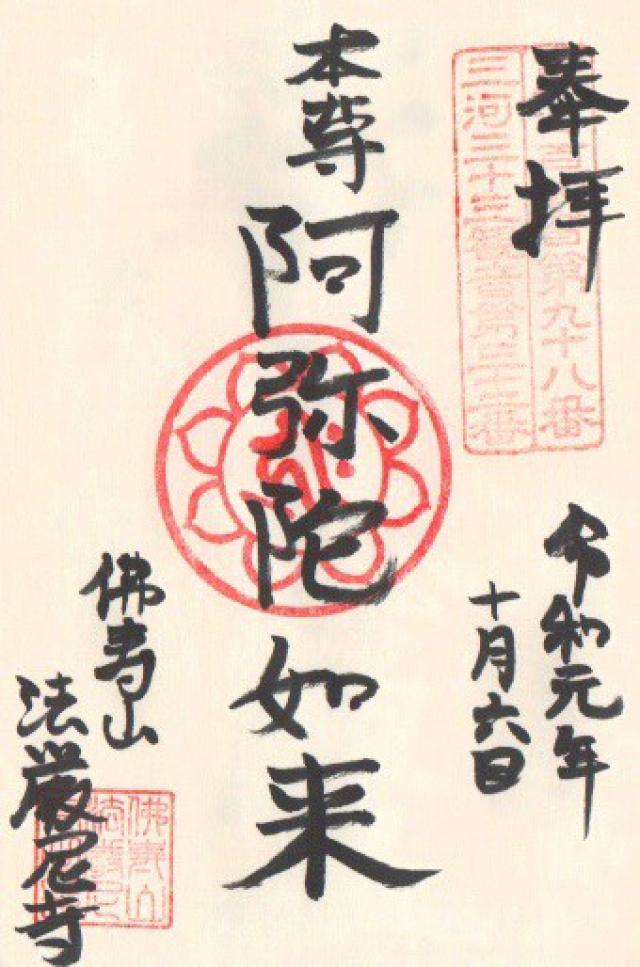 奉拝
第九十八番
三河三十三観音第三十二番
令和元年
十月六日
本尊
阿弥陀如来
佛寿山
法厳尼寺
佛寿山